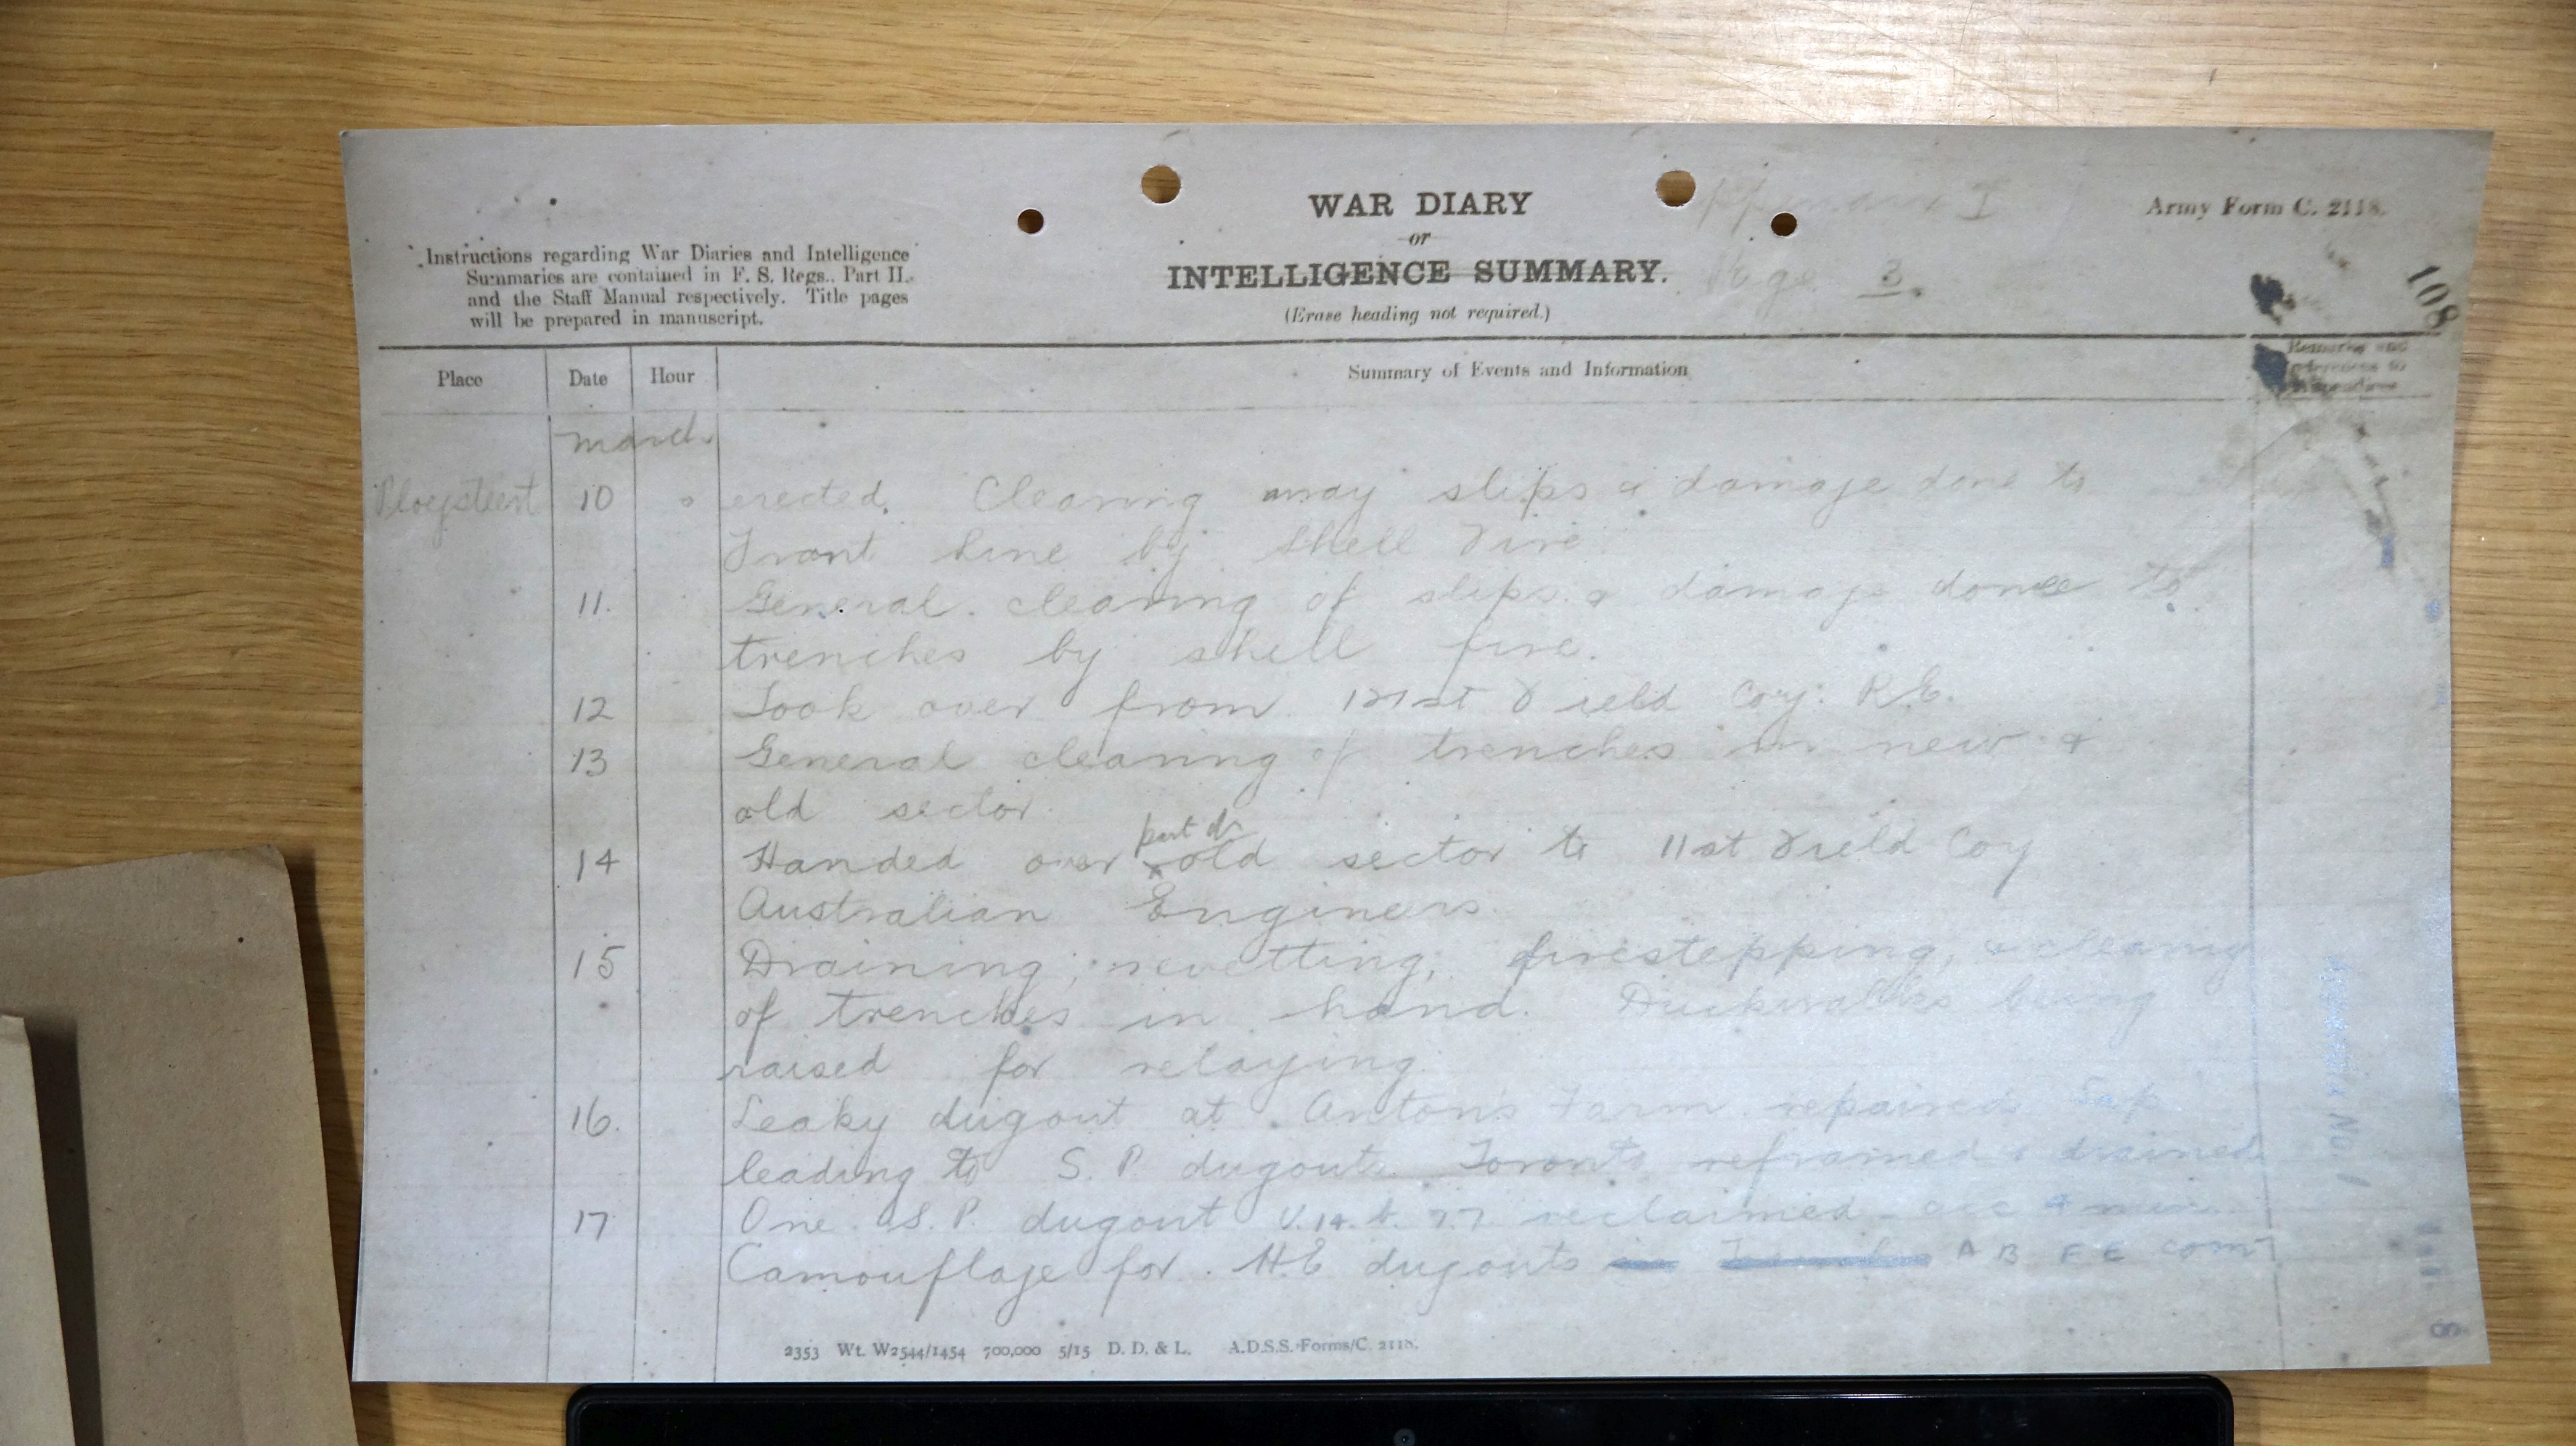 WAR DIARY
or
INTELLIGENCE SUMMARY.
(Erase heading not required.)
Appendix I
Page 3.
Army Form C. 2118.
108
Instructions regarding War Diaries and Intelligence
Summaries are contained in F. S. Regs., Part II.
and the Staff Manual respectively. Title pages
will be prepared in manuscript.
Place Date Hour Summary of Events and Information Remarks and
references to
Appendices
March
Ploegsteert 10 erected. Clearing away slips & damage done to
Front line by shell fire
11. General clearing of slips & damage done to
trenches by shell fire.
12 Took over from 121st Field Coy: R.E.
13 General clearing of trenches in new &
old sector
part of
14 Handed over old sector to 11st Field Coy
Australian Engineers.
15 Draining, revetting, firestepping, & cleaning
of trenches in hand. Duckwalks being
raised for relaying.
16. Leaky dugout at Anton's Farm repaired Sap
leading to S. P. dugouts Toronto reframed & drained
17 One S. P. dugout U.14. reclaimed
Camouflage for H.E dugouts A B F E
2353 Wt. W2544/1454 700,000 5/15 D. D. & L. A.D.S.S. Forms/C. 2118.
No. 1